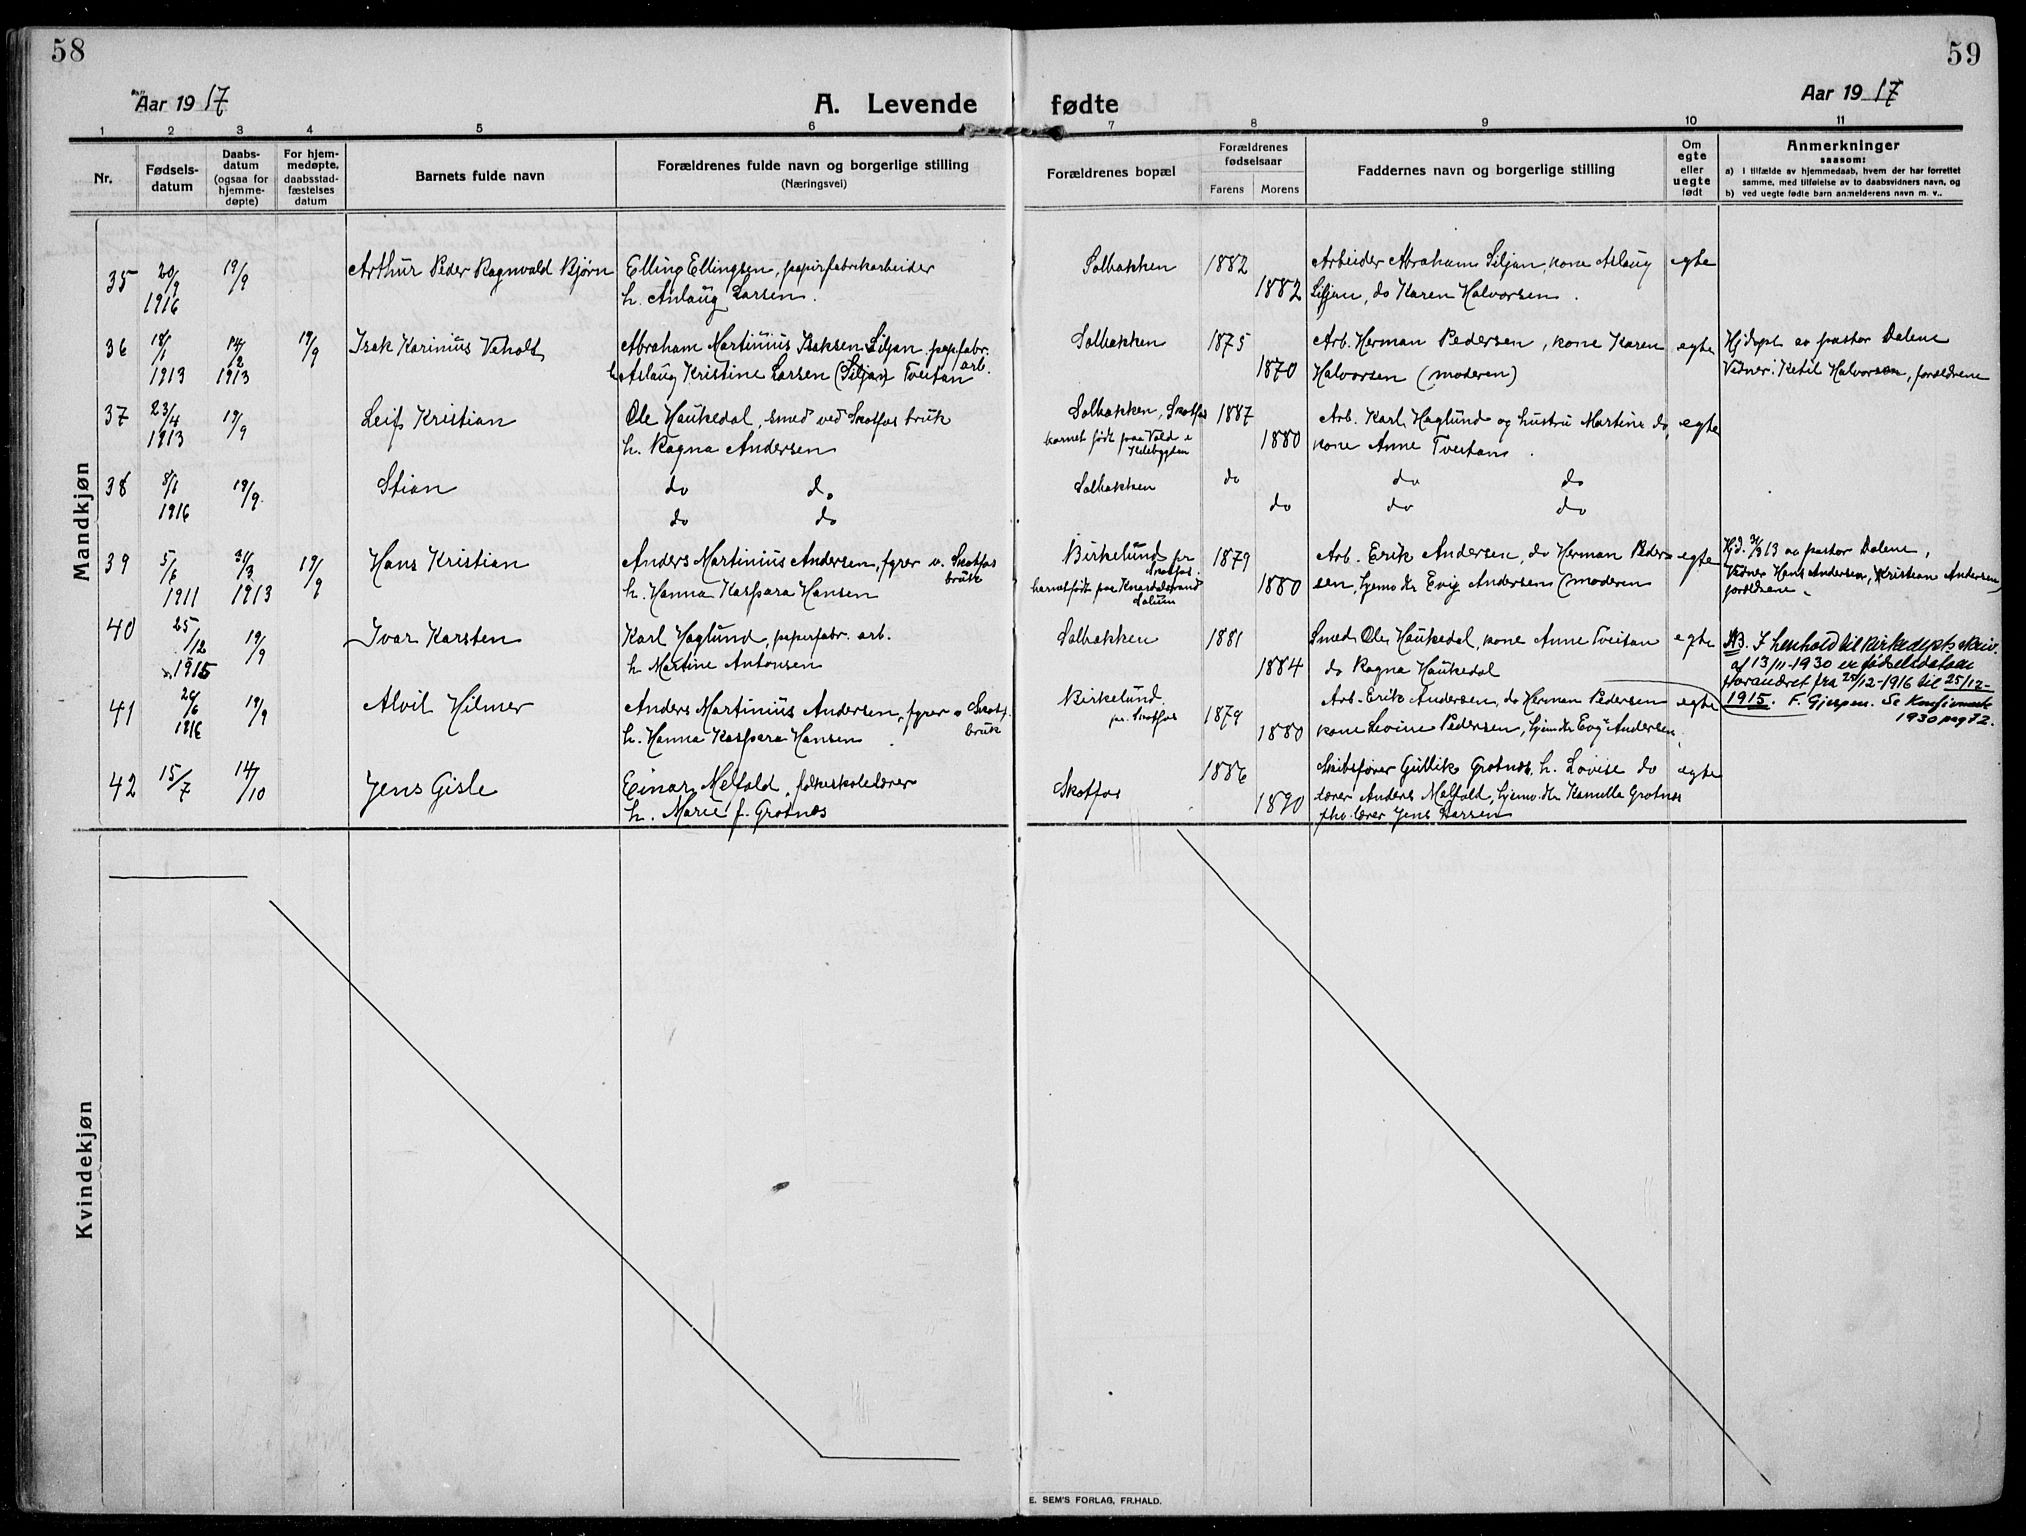 58
59
Aar 1917
A. Levende fødte
Aar 1917
1 2 3 4 5 6 7 8 9 10 11
Nr.
Fødsels-
datum
Daabs-
datum
(ogsaa for
hjemme-
døpte)
For hjem-
medøpte,
daabsstad-
fæstelses
datum
Barnets fulde navn
Forældrenes fulde navn og borgerlige stilling
(Næringsvei)
Forældrenes bopæl
Forældrenes
fødselsaar
Farens Morens
Faddernes navn og borgerlige stilling
Om
egte
eller
uegte
født
Anmerkninger
saasom:
a) I tilfælde av hjemmedaab, hvem der har forrettet
samme, med tilføielse av to daabsvidners navn, og
b) ved uegte fødte barn anmelderens navn m. v..
Mandkjøn
35 20/9 19/9 Arthur Peder Ragnvald Bjørn Elling Ellingsen, papirfabrikarbeider Solbakken 1882 Arbeider Abraham Siljan, kone Aslaug egte
1916 h. Anlaug Larsen. 1882 Siljan, do Karen Halvorsen.
36 18/1 14/2 19/9 Isak Karinius Veholt Abraham Martinius Isaksen Siljan, papfabr. Solbakken 1875 Arb. Herman Pedersen, kone Karen egte Hjdøpt av pastor Dalene
1913 1913 h. Aslaug Kristine Larsen (Siljan) Tveitan arb. 1870 Halvorsen (moderen) Vidner: Ketil Halvorsen, forældrene
37 23/4 19/9 Leif Kristian Ole Haukedal, smed ved Skotfos bruk Solbakken, Skotfos 1887 Arb. Karl Haglund og hustru Martine do, egte
1913 h. Ragna Andersen barnet født paa Vold i 1880 kone Anne Tveitan.
38 8/1 19/9. Stian do do Solbakken do do do
1916 do do do do do
39 5/6 31/3 19/9 Hans Kristian Anders Martinius Andersen, fyrer v. Skotfos Birkelund pr 1879 Arb. Erik Andersen, do Herman Peder- egte Hjd. 31/3 13 av pastor Dalene,
bruk Skotfos. Vidner Hans Andersen, Kristian Andersen,
1911 1913 h. Hanna Kaspara Hansen 1880 sen, hjemv. dr Evig Andersen (moderen forældrene.
40 25/12 19/9 Ivar Karsten Karl Haglund, papirfabr. arb. Solbakken 1881 Smed Ole Haukedal, kone Anne Tveitan egte NB. I henhold til kirkedepts skriv.
1915 h Martine Antonsen 1884 do Ragna Haukedal af 13/11-1930 er fødselsdatoen
forandret fra 25/12-1916 til 25/12-
41 26/6 19/9 Alvil Hilmer Anders Martinius Andersen, fyrer v Skotf. Birkelund 1879 Arb. Erik Andersen, do Herman Pedersen egte 1915. F. Gjerpen. Se Konfirmerte
1916 h. Hanna Kaspara Hansen bruk pr. Skotfos 1880 kone Lovine Pedersen, hjemv. dr Evig Andersen, 1930 pag 72.
42 15/7 14/10 Jens Gisle Einar Melfald, folkeskolelærer Skotfos 1886 Skibsfører Gullik Grotnæs, h. Lovise do egte
h. Marie f. Grotnæs 1890 lærer Anders Melfald, hjemv. dtr Kamilla Grotnæs
fhv. lærer Jens Larsen
Kvindekjøn
E. SEM'S FORLAG, FR.HALD.